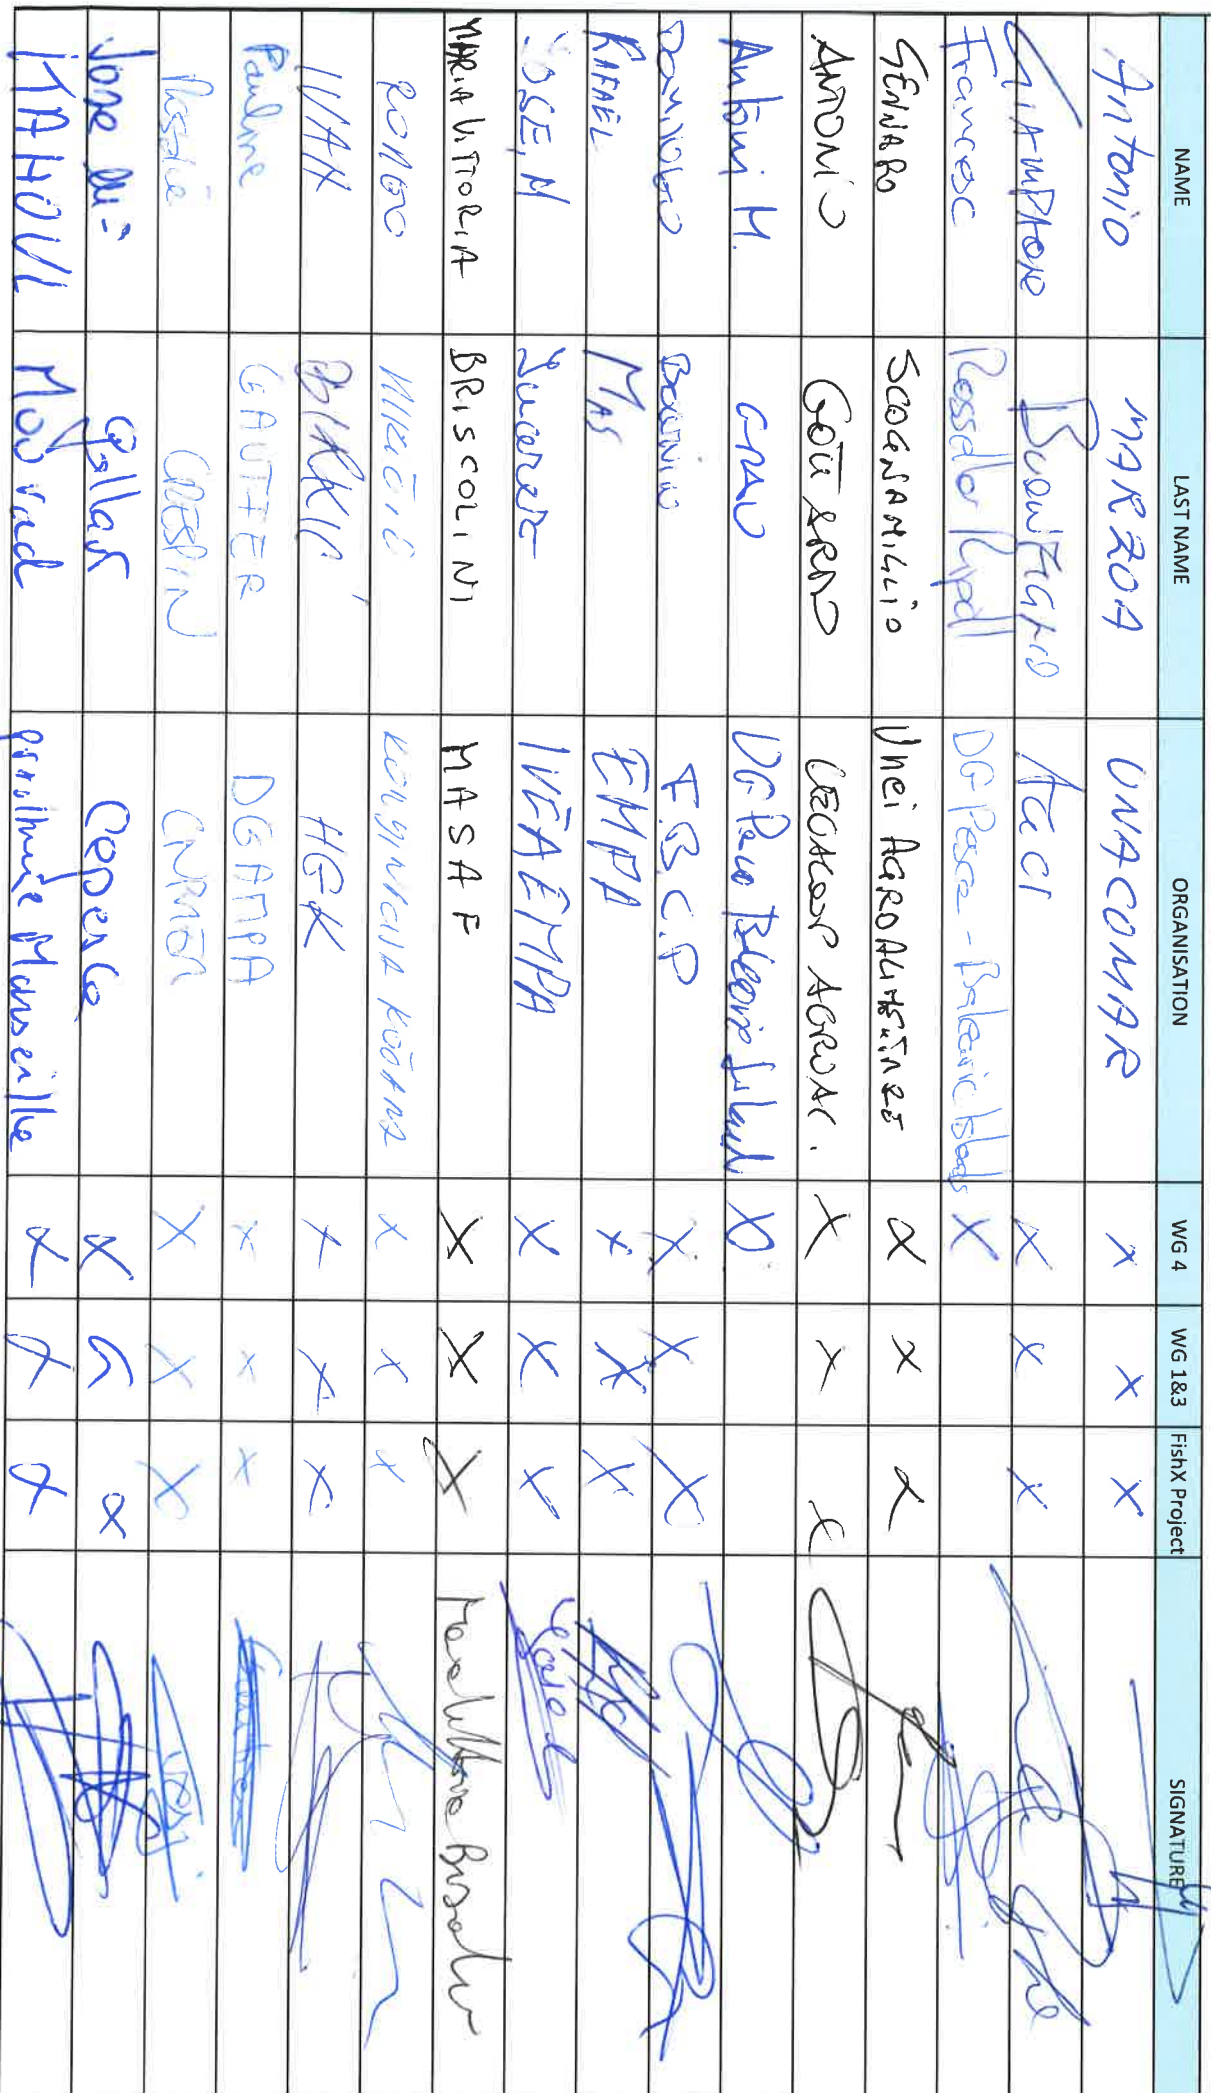 NAME LAST NAME ORGANISATION WG 4 WG 1&3 FishX Project SIGNATURE
Antonio MARZOA UNACOMAR X X X
GIAMPAOLO BUONFIGLIO AGCI X X X
Francesc Rosselló Ripoll DG Pesca - Balearic Islands X
GENNARO SCOGNAMIGLIO Unci AGROALIMENTARE X X X
ANTONIO GOTTARDO LEGACOOP AGROAL. X X X
Antoni M. GRAU DG Pesca Balearic Island X
F.B.C.P X X X
RAFAEL MAS EMPA X X X
JOSE, M IVEAEMPA X X X
MARIA VITTORIA BRISCOLINI MASAF X X X Maria Vittoria Briscolini
ROMEO MIKIČIĆ X X X
IVAN BIRKIĆ HGK X X X
Pauline GAUTIER DGAMPA X X X
CRESPIN CNPMEM X X X
Jose Luis Gallar Copesca X X X
MAHOUI Mourad prud'homie Marseille X X X